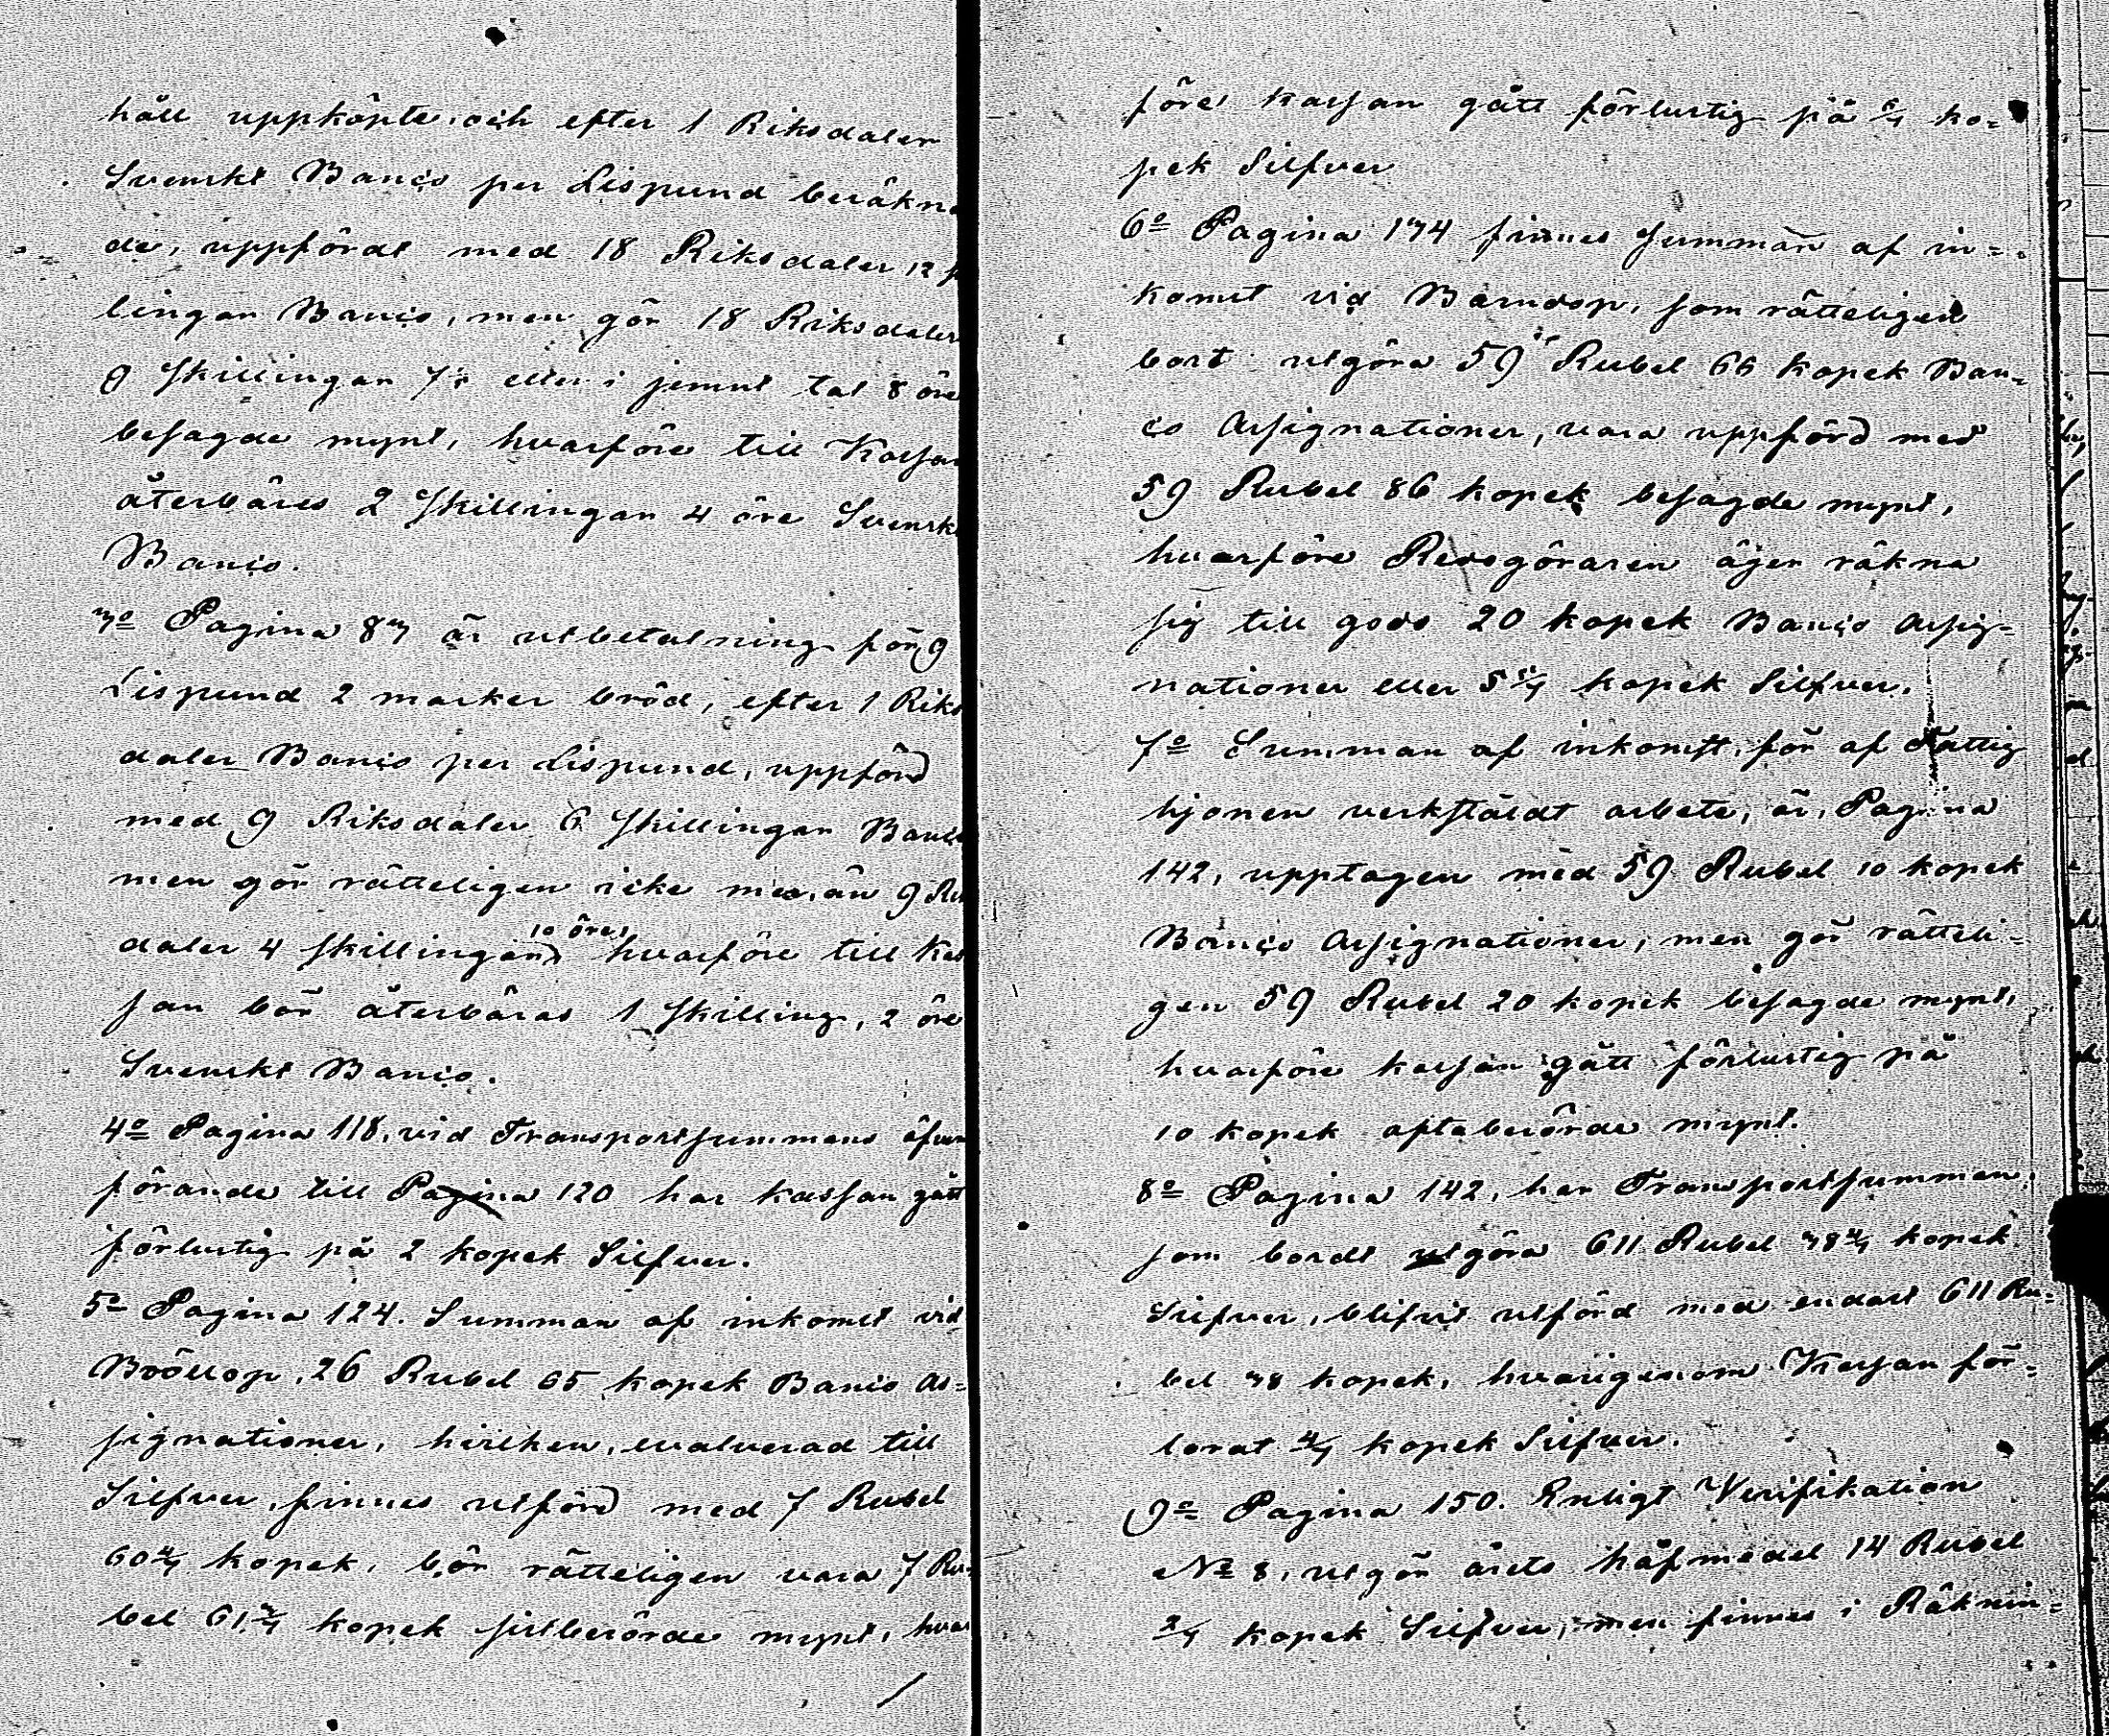 håll uppköpte och efter 1 Riksdaler
Svenskt Banco per Lispund beräkna
de, uppfördt med 18 Riksdaler 12 s
lingar Banco, men gör 18 Riksdaler
9 skillingar eller i jemnt tal 8 öre
besagde mynt, hvarföre till Kassan
återbäres 2 skillingar 4 öre Svensk
Banco.
3o Pagina 83 är utbetalning för 9
Lispund 2 marker bröd, efter 1 Riks
daler Banco per Lispund, uppförd
med 9 Riksdaler 6 skillingar Banco
men gör rätteligen icke mer än 9 Rik
daler 4 skillingar 10 öre, hvarföre till Kas
san bör återbäras 1 skilling, 2 öre
Svenskt Banco.
4o Pagina 118, vid Transportsummans öfver
förande till Pagina 120 har kassan gått
förlustig på 2 kopek Silfver.
5o Pagina 124. Summan af inkomst vid
Bröllop, 26 Rubel 65 kopek Banco As=
signationer, hvilken, evalverad till
Silfver, finnes utförd med 7 Rubel
60 4/7 kopek, bör rätteligen vara 7 Ru=
bel 61 3/7 kopek sistberörde mynt, hvar
före kassan gått förlustig på 6/7 ko=
pek Silfver
6o Pagina 134 finnes summan af in=
komst vid Barndop, som rätteligen
bort utgöra 59 Rubel 66 kopek Ban=
co Assignationer, vara uppförd med
59 Rubel 86 kopek besagde mynt,
hvarföre Redogöraren äger räkna
sig till godo 20 kopek Banco Assig=
nationer eller 5 5/7 kopek Silfver.
7o Summan af inkomst, för af Fattig
hjonen verkställdt arbete, är, Pagina
142, upptagen med 59 Rubel 10 kopek
Banco Assignationer, men gör rätteli=
gen 59 Rubel 20 kopek besagde mynt,
hvarföre kassan gått förlustig på
10 kopek oftaberörde mynt.
8o Pagina 142, har Transportsumman,
som bordt utgöra 611 Rubel 38 4/7 kopek
Silfver, blifvit utförd med endast 611 Ru=
bel 38 kopek, hvarigenom Kassan för=
lorat 4/7 kopek Silfver.
9o Pagina 150. Enligt Verifikation
No 8, utgör årets håfmedel 14 Rubel
2/7 kopek Silfver, men finnes i Räknin=